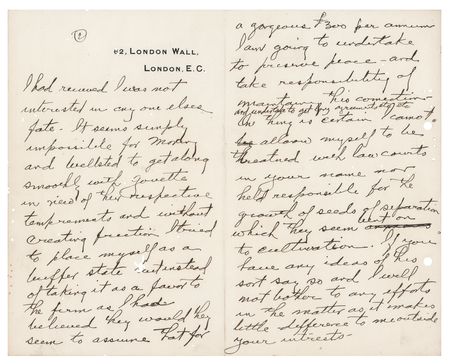 (2)
82, LONDON WALL,
LONDON, E.C.
I had received I was not
interested in any one elses
fate. It seems simply
impossible for Moody
and Wellsted to get along
smoothly with
in view of their respective
temprements and without
creating friction I tried
to place myself as a
buffer state but instead
of taking it as a favor to
the firm as I had
believed they would they
seem to assume that for
a gorgeous $300 per annum
I am going to undertake
to preserve peace - and
take responsibility of
maintaining this connection
and undertake to get any etc
One thing is certain I cannot
allow myself to be
threatened with law courts
in your name nor
held responsible for the
growth of seeds of separation
which they seem bent on
to cultivation. If you
have any ideas of this
sort say so and I will
not bother to any efforts
in the matter as it makes
little difference to me outside
your intrests -